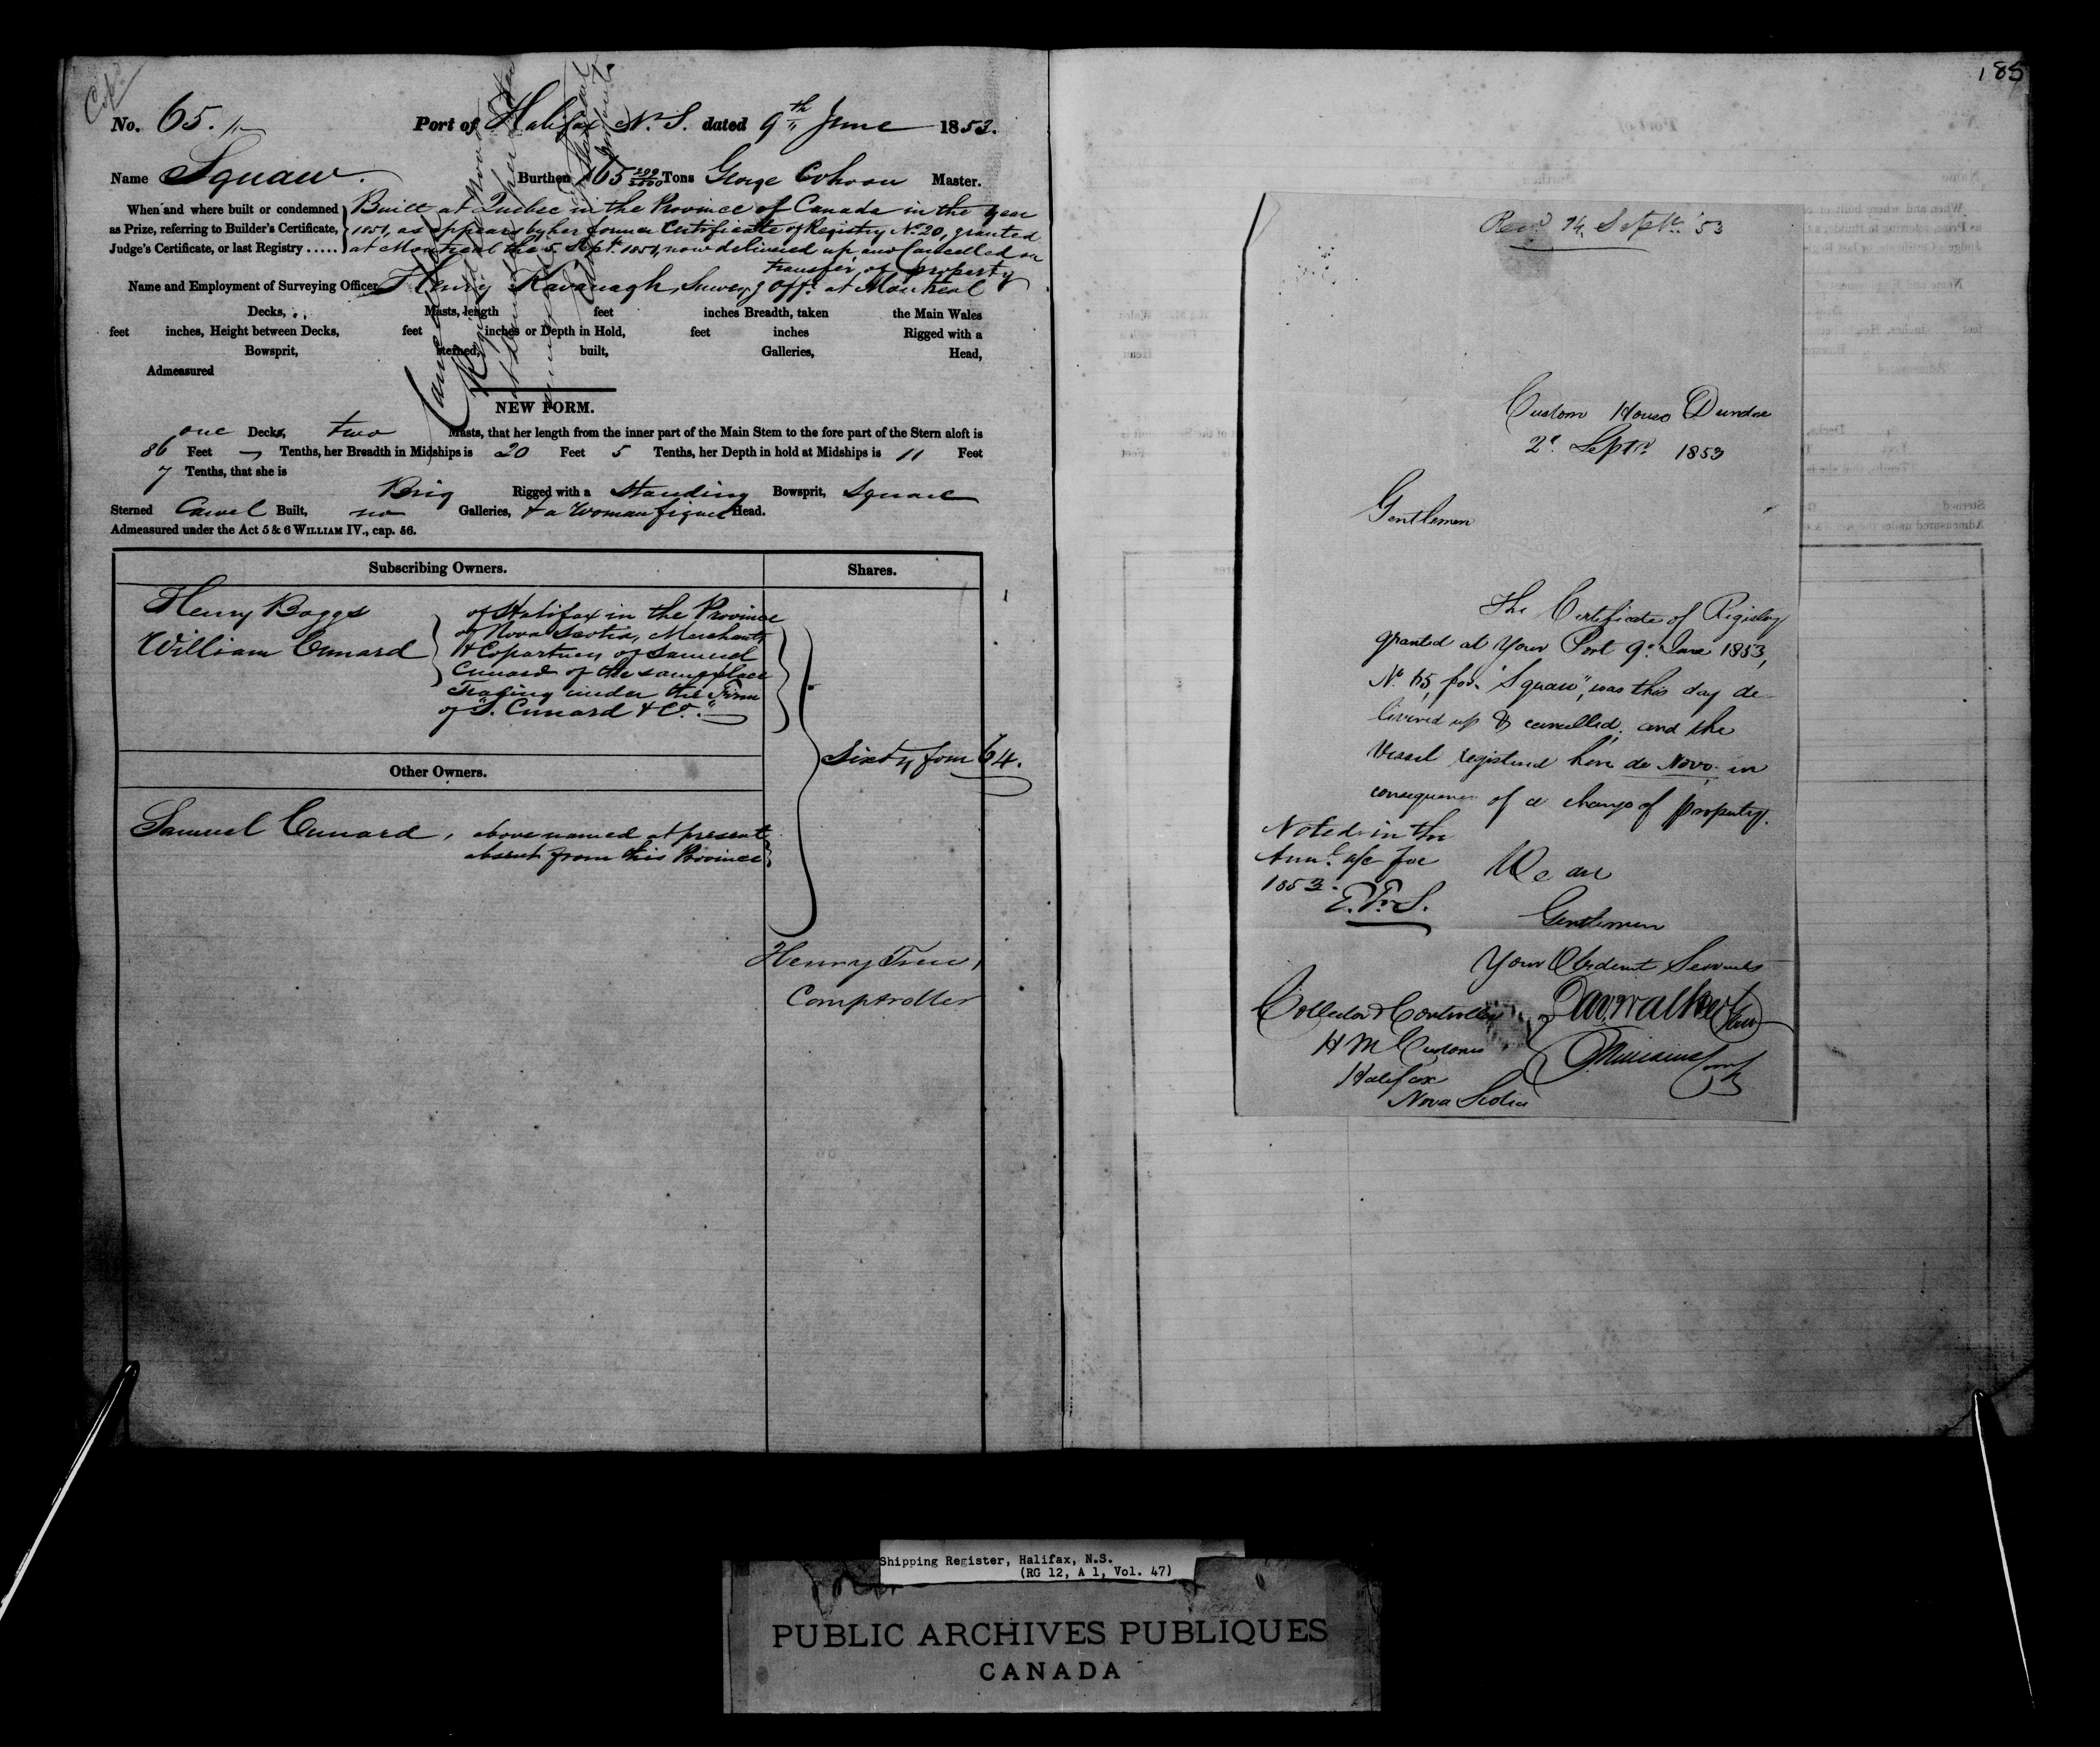 No. 65.
Port of Halifax N. S. dated 9th June 1853.
Name Squaw. Burthen 165 Tons George Cohoon Master.
When and where built or condemned as Prize, referring to Builder's Certificate, Judge's Certificate, or last Registry .....
Built at Quebec in the Province of Canada in the year
1851, as appears by her former Certificate of Registry No. 20, granted
at Montreal the 5 Sept. 1851, now delivered up and Cancelled on
transfer of property
Name and Employment of Surveying Officer Henry Kavanagh, Survey'g Offr. at Montreal
Decks, Masts, length feet inches Breadth, taken the Main Wales
feet inches, Height between Decks, feet inches or Depth in Hold, feet inches Rigged with a
Bowsprit, sterned, built, Galleries, Head,
Admeasured
Cancelled
NEW FORM.
one Decks, two Masts, that her length from the inner part of the Main Stem to the fore part of the Stern aloft is
86 Feet Tenths, her Breadth in Midships is 20 Feet 5 Tenths, her Depth in hold at Midships is 11 Feet
7 Tenths, that she is
Brig Rigged with a Standing Bowsprit, Square
Sterned Carvel Built, no Galleries, & a Woman figure Head.
Admeasured under the Act 5 & 6 WILLIAM IV., cap. 56.
Subscribing Owners. Shares.
Henry Boggs
William Cunard
of Halifax in the Province
of Nova Scotia, Merchants
& Copartners of Samuel
Cunard of the same place
Trading under the Firm
of "S. Cunard & Co."
Sixty four 64.
Other Owners.
Samuel Cunard, above named at present
absent from this Province
Henry Trew,
Comptroller
185
Recd. 14 Septr. '53
Custom House Dundee
2d. Septr. 1853
Gentlemen
The Certificate of Registry
granted at Your Port 9th June 1853,
No. 65, for "Squaw", was this day de
livered up & cancelled, and the
Vessel registered here de Novo in
consequence of a change of property.
Noted in the
Annl. a/c for
1853.
We are
Gentlemen
Your Obedient Servants
Collector & Controller
H M Customs
Halifax
Nova Scotia
Shipping Register, Halifax, N.S.
(RG 12, A 1, Vol. 47)
PUBLIC ARCHIVES PUBLIQUES
CANADA